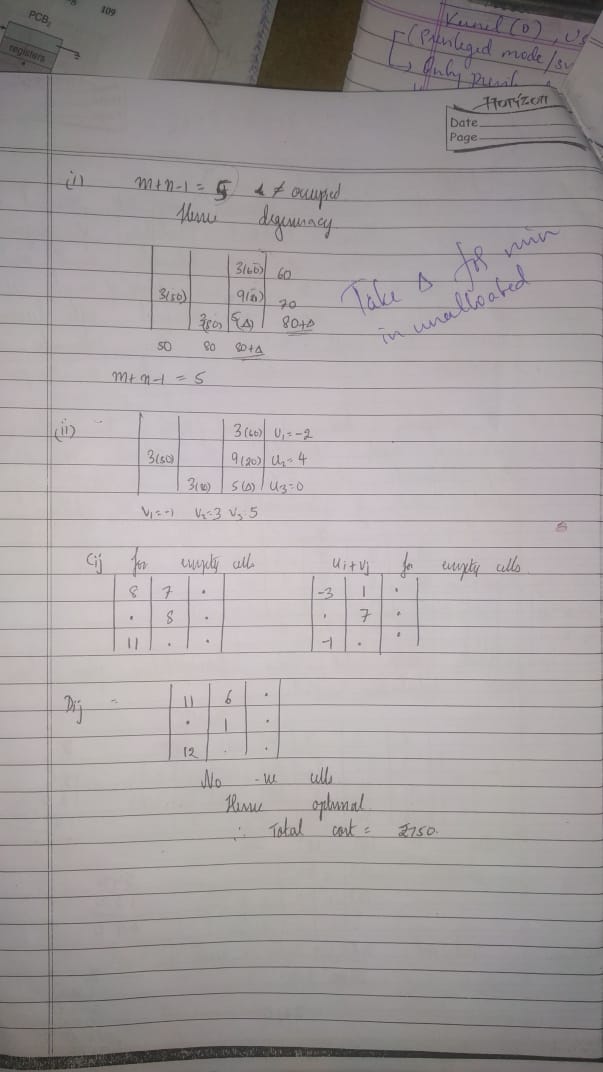 PCB₂
109
registers
Kernel (0), us
(Privileged mode / su
Only
HORIZON
Date
Page
(i) m+n-1 = 5 ≠ occupied
Hence degeneracy
3(60) 60
3(50) 9(20) 70
3(80) 5(Δ) 80+Δ
50 80 80+Δ
Take Δ for min
in unallocated
m+n-1 = 5
(ii) 3(60) U₁=-2
3(50) 9(20) U₂=4
3(80) 5(Δ) U3=0
V₁=-1 V₂=3 V₃=5
Cij for empty cells
8 7 .
. 8 .
11 . .
ui+vj for empty cells
-3 1 .
. 7 .
-1 . .
Dij =
11 6 .
. 1 .
12 . .
No -ve cells
Hence optimal
∴ Total cost = ₹750.